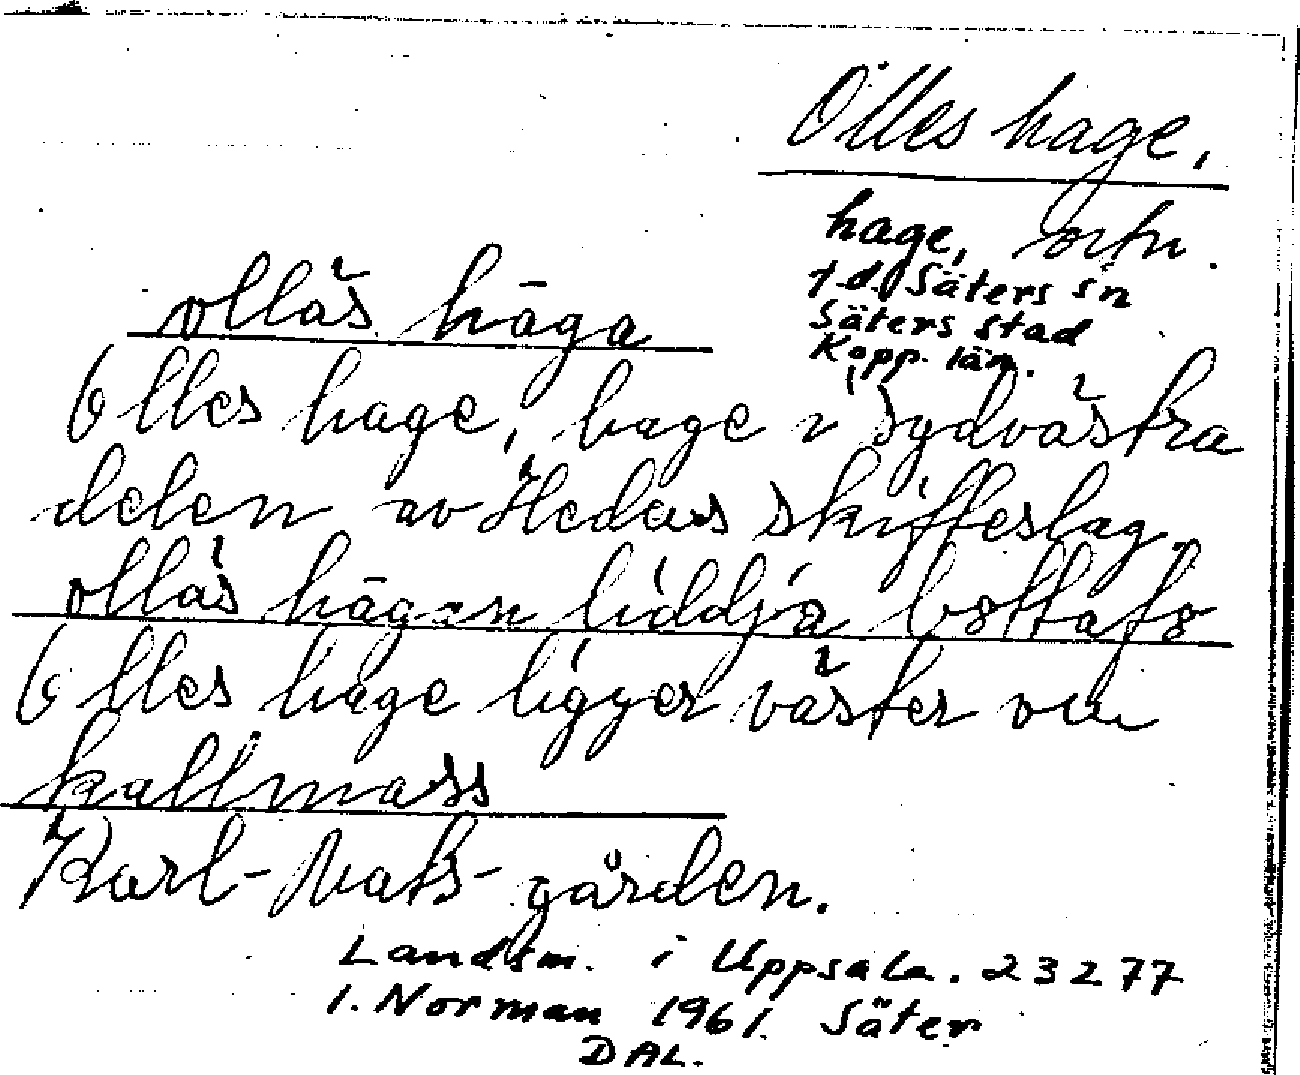 Olles hage,
hage, ortn.
f.d. Säters sn
Säters stad
Kopp. län.
ollàs hāga
Olles hage, hage i sydvästra
delen av Hedas skifteslag.
ollàs hāgan liddja
Olles hage ligger väster om
kallmass
Karl-Mats-gården.
Landsm. i Uppsala. 23277
I. Norman 1961. Säter
DAL.